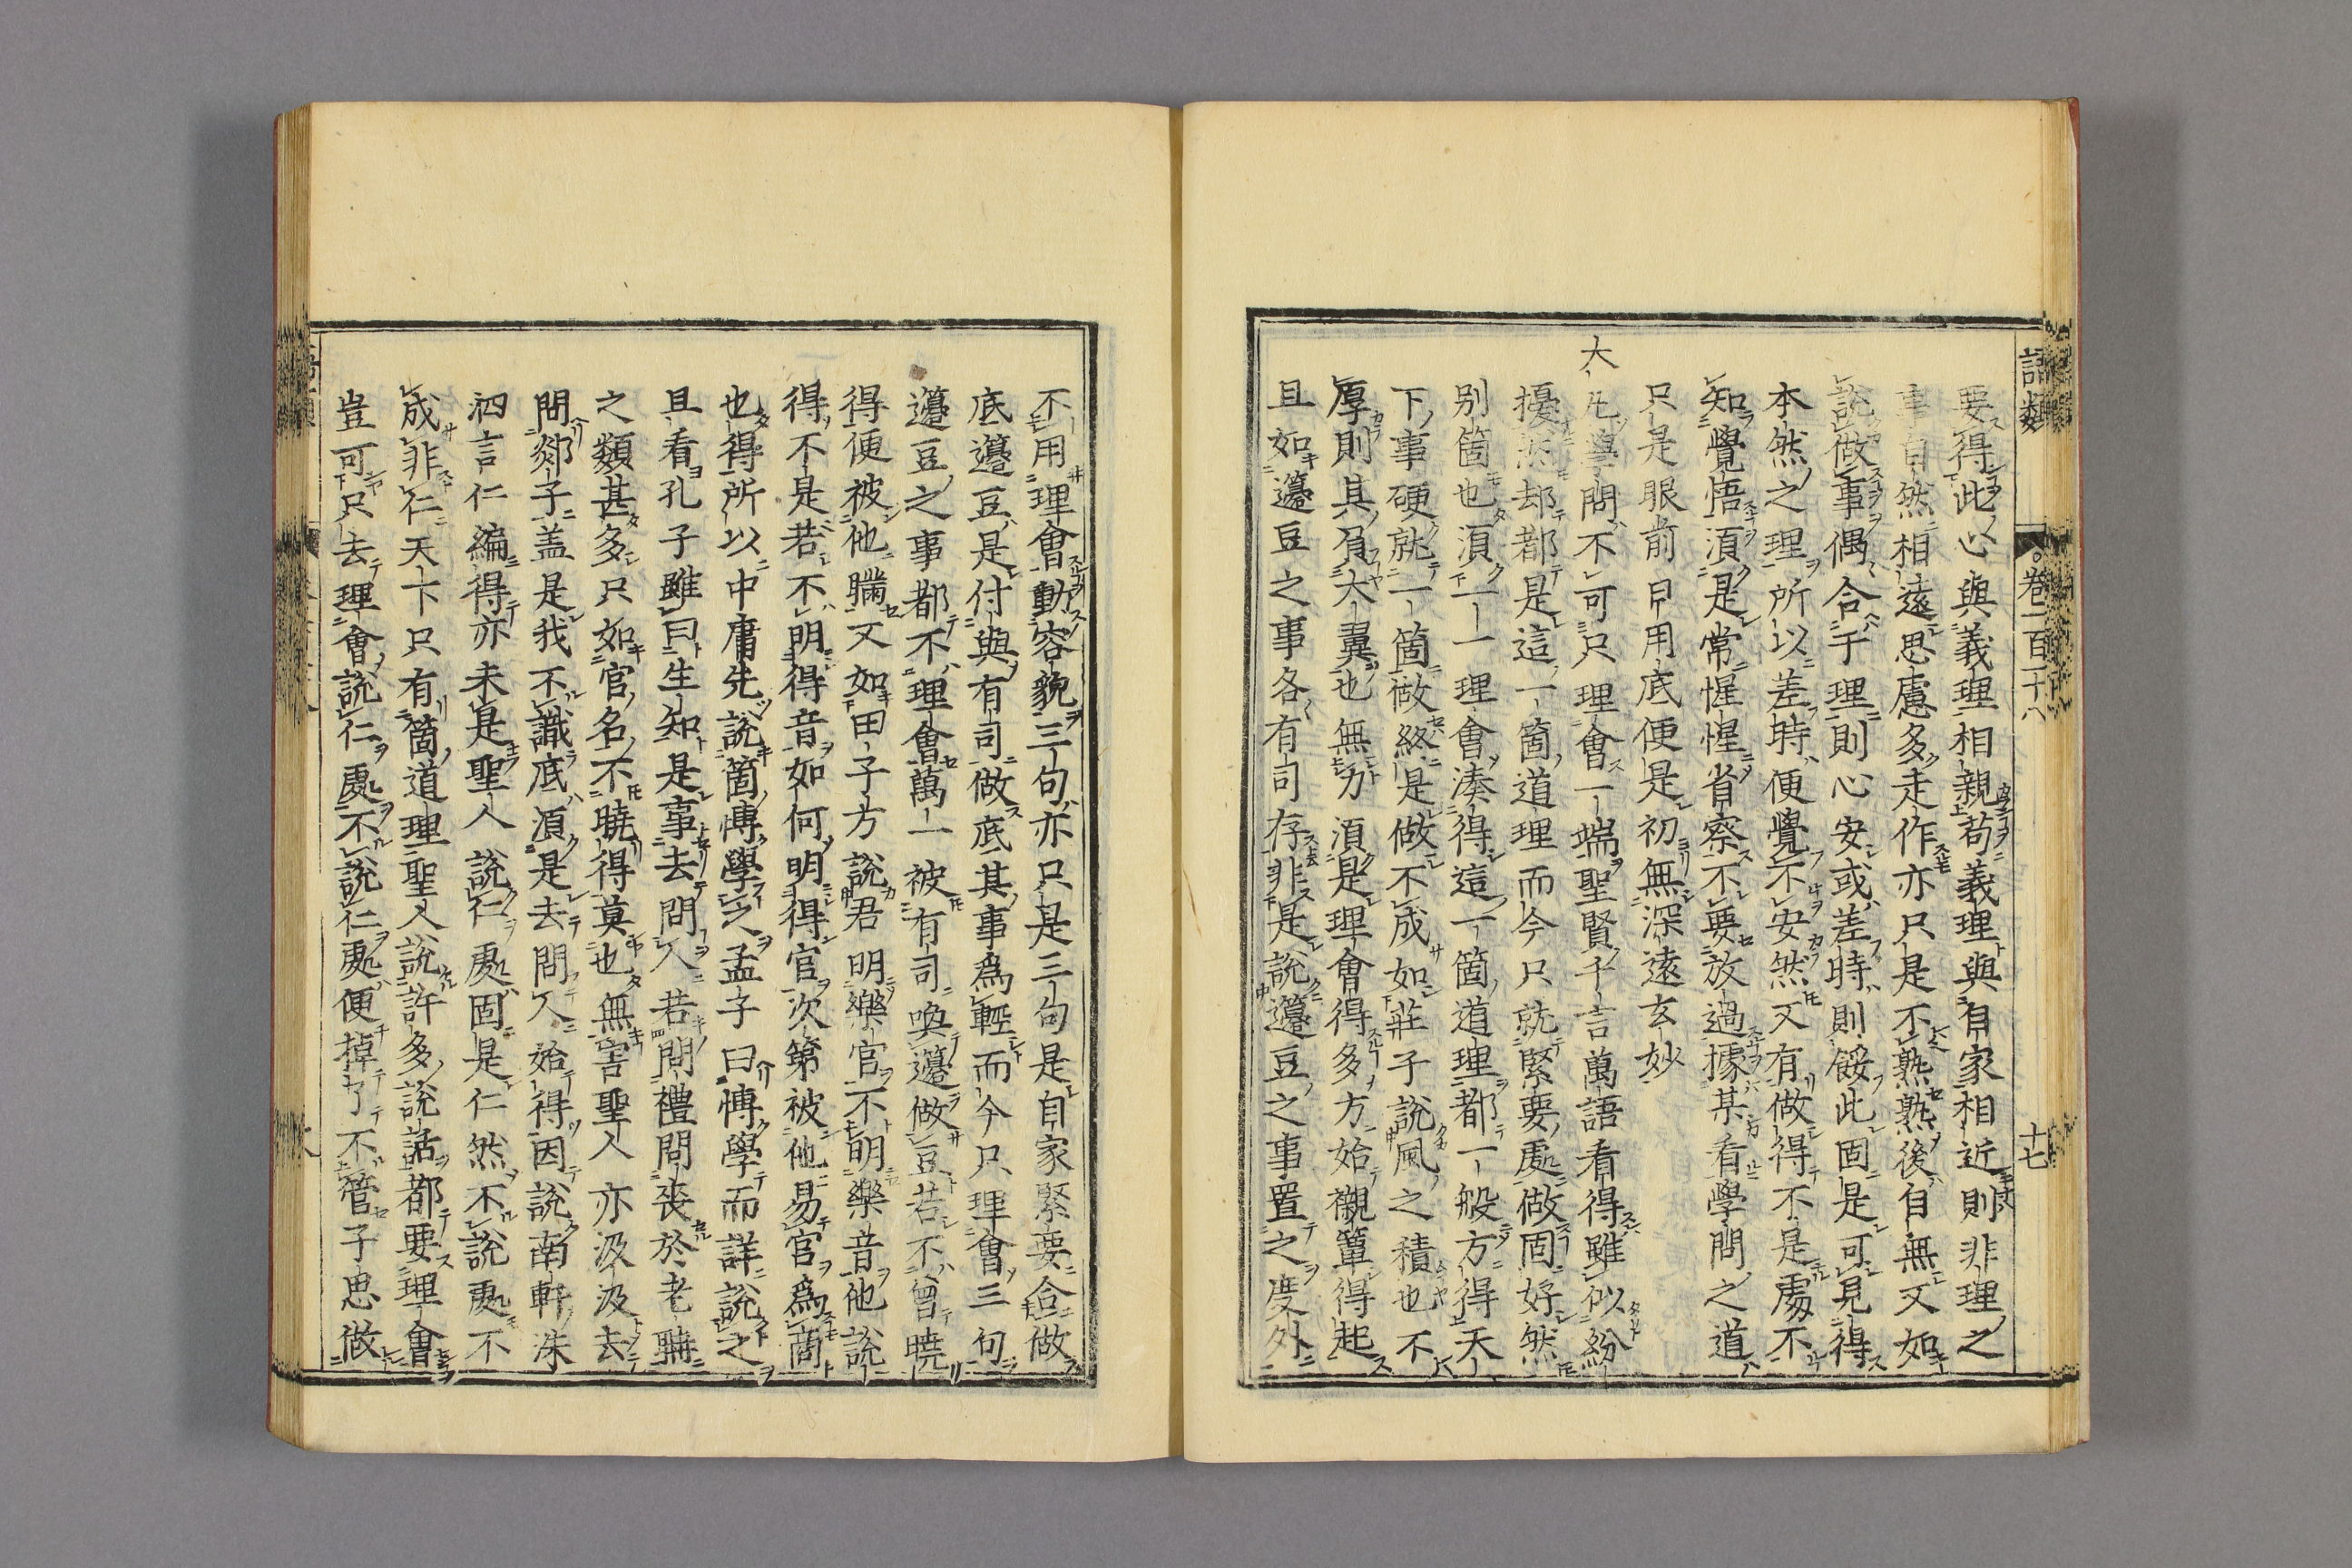 語類 卷一百十八 十七
要得此心與義理相親苟義理與自家相近則非理之
事自然相遠思慮多走作亦只是不熟熟後自無又如
說做事偶合于理則心安或差時則餒此固是可見得
本然之理所以差時便覺不安然又有做得不是處不
知覺悟湏是常惺惺省察不要放過據某看學問之道
只是眼前日用底便是初無深遠玄妙
大凡學問不可只理會一端聖賢千言萬語看得雖似紛
擾然却都是這一箇道理而今只就緊要處做固好然
別箇也湏一一理會湊得這一箇道理都一般方得天
下事硬就一箇做終是做不成如莊子說風之積也不
厚則其負大翼也無力湏是理會得多方始襯簟得起
且如籩豆之事各有司存非是說籩豆之事置之度外
不用理會動容貌三句亦只是三句是自家緊要合做
底籩豆是付與有司做底其事爲輕而今只理會三句
籩豆之事都不理會萬一被有司喚籩做豆若不曾曉
得便被他瞞又如田子方說君明樂官不明樂音他說
得不是若不明得音如何明得官次第被他易官爲商
也得所以中庸先說箇慱學之孟子曰慱學而詳說之
且看孔子雖曰生知是事去問人若問禮問喪於老聃
之類甚多只如官名不曉得莫也無害聖人亦汲汲去
問郯子盖是我不識底湏是去問人始得因說南軒洙
泗言仁編得亦未是聖人說仁處固是仁然不說處不
成非仁天下只有箇道理聖人說許多說話都要理會
豈可只去理會說仁處不說仁處便掉了不管子思做